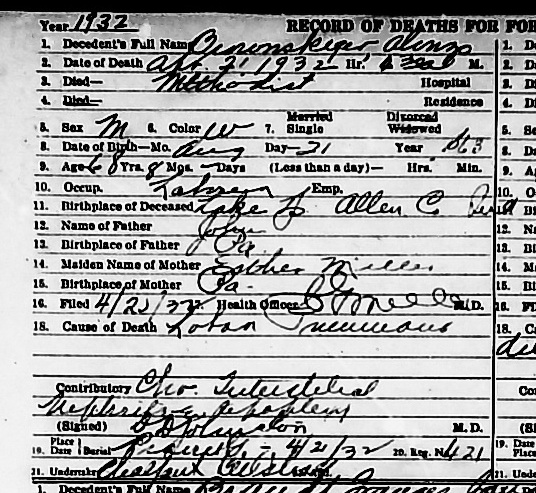 Year 1932 RECORD OF DEATHS FOR FOR
1. Decedent's Full Name Alonzo
2. Date of Death Apr. 21 1932 Hr. M.
3. Died— Methodist Hospital
4. Died— Residence
5. Sex M 6. Color W 7. Married Single Divorced Widowed
8. Date of Birth—Mo. Aug Day—21 Year 63
9. Age 68 Yrs. 8 Mos. —Days (Less than a day)— Hrs. Min.
10. Occup. Laborer Emp.
11. Birthplace of Deceased Lake Tp Allen C
12. Name of Father John
13. Birthplace of Father Pa.
14. Maiden Name of Mother Esther Miller
15. Birthplace of Mother Pa.
16. Filed 4/22/32 17. Health Officer M.D.
18. Cause of Death Lobar Pneumonia
Contributory Chr. Interstitial
Nephritis
(Signed) D D Johnston M. D.
19. Place Date Burial 4/21/32 20. Reg. No. 421
21. Undertaker
1. Decedent's Full Name